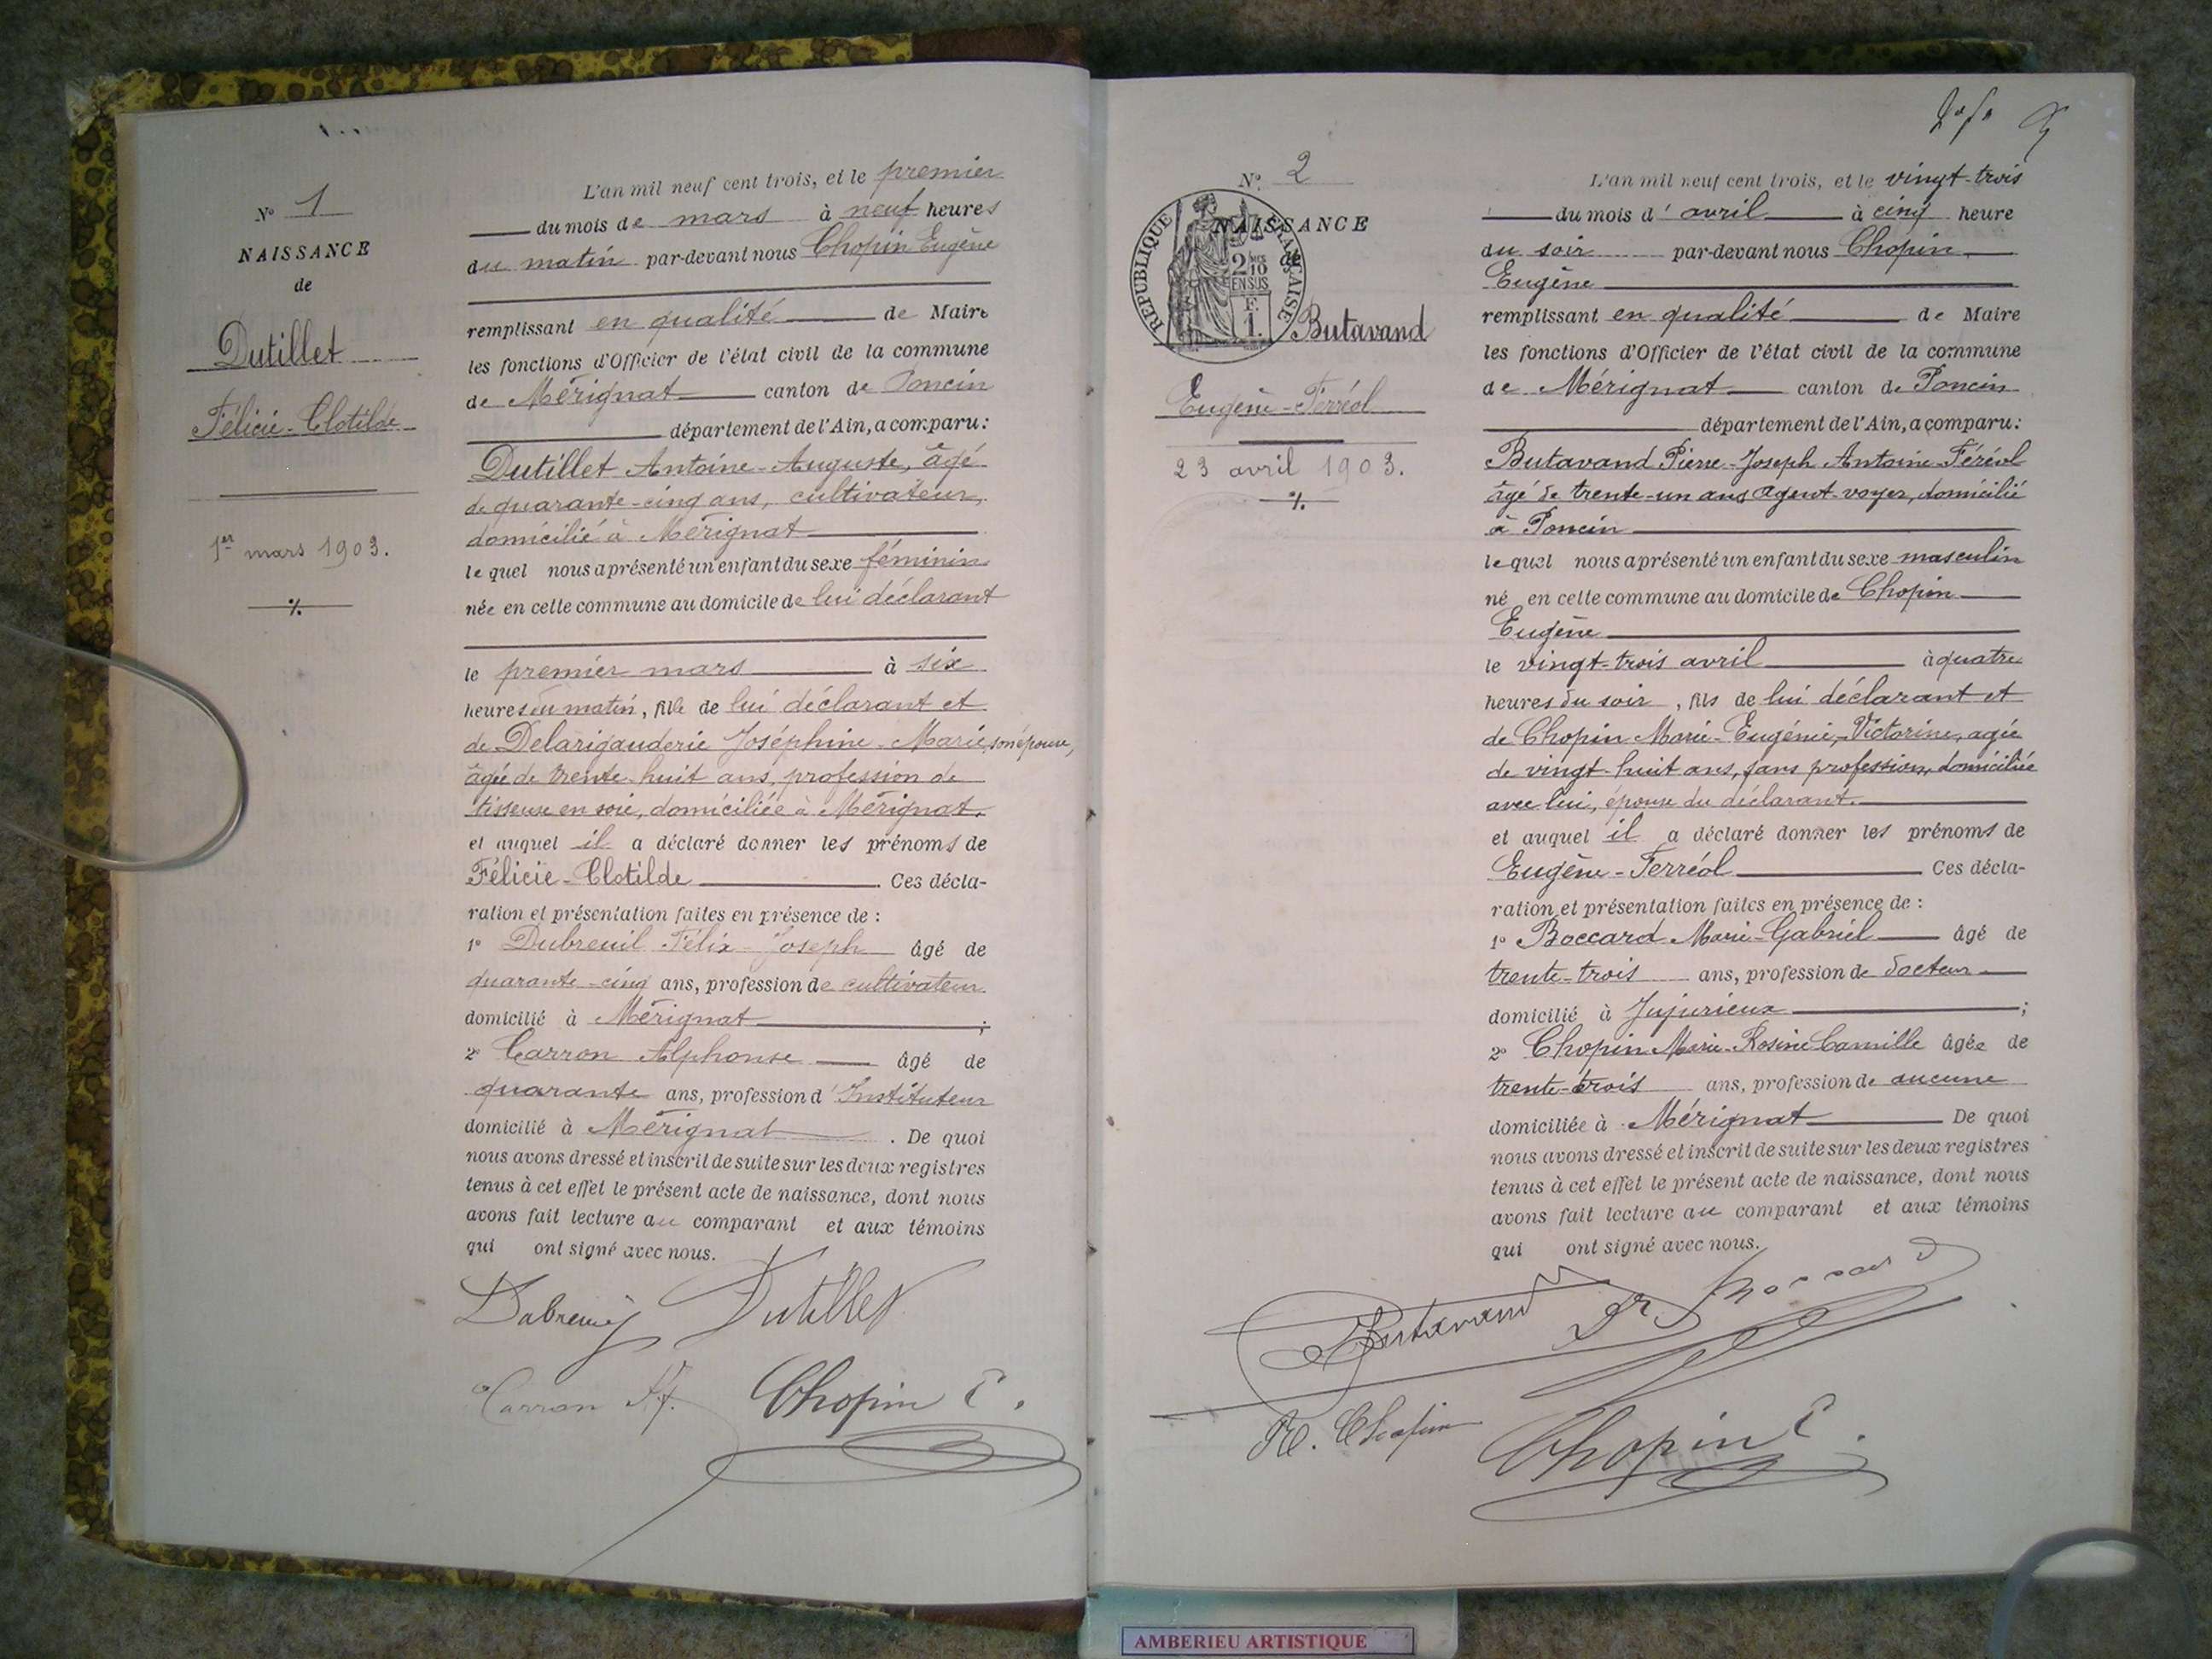 N° 1
NAISSANCE
de
Dutillet
Félicie-Clotilde
1er mars 1903.
L'an mil neuf cent trois, et le premier
du mois de mars à neuf heures
du matin par-devant nous Chopin Eugène
remplissant en qualité de Maire
les fonctions d'Officier de l'état civil de la commune
de Mérignat canton de Poncin
département de l'Ain, a comparu:
Dutillet Antoine-Auguste, âgé
de quarante-cinq ans, cultivateur,
domicilié à Mérignat
lequel nous a présenté un enfant du sexe féminin
née en cette commune au domicile de lui déclarant
le premier mars à six
heures du matin, fille de lui déclarant et
de Delarigauderie Joséphine-Marie, son épouse,
âgée de trente-huit ans, profession de
tisseuse en soie, domiciliée à Mérignat.
et auquel il a déclaré donner les prénoms de
Félicie-Clotilde. Ces décla-
ration et présentation faites en présence de :
1° Dubreuil Félix-Joseph âgé de
quarante-cinq ans, profession de cultivateur
domicilié à Mérignat ;
2° Carron Alphonse âgé de
quarante ans, profession d'Instituteur
domicilié à Mérignat. De quoi
nous avons dressé et inscrit de suite sur les deux registres
tenus à cet effet le présent acte de naissance, dont nous
avons fait lecture au comparant et aux témoins
qui ont signé avec nous.
Dubreuil Dutillet
Carron Chopin E.
N° 2
NAISSANCE
de
RÉPUBLIQUE FRANÇAISE
2/10
EN SUS
F.
1.
Butavand
Eugène-Ferréol
23 avril 1903.
L'an mil neuf cent trois, et le vingt-trois
du mois d'avril à cinq heure
du soir par-devant nous Chopin
Eugène
remplissant en qualité de Maire
les fonctions d'Officier de l'état civil de la commune
de Mérignat canton de Poncin
département de l'Ain, a comparu:
Butavand Pierre-Joseph Antoine Féréol
âgé de trente-un ans agent-voyer, domicilié
à Poncin
lequel nous a présenté un enfant du sexe masculin
né en cette commune au domicile de Chopin
Eugène
le vingt-trois avril à quatre
heures du soir, fils de lui déclarant et
de Chopin Marie-Eugénie-Victorine, agée
de vingt-huit ans, sans profession, domiciliée
avec lui, épouse du déclarant.
et auquel il a déclaré donner les prénoms de
Eugène-Ferréol Ces décla-
ration et présentation faites en présence de :
1° Boccard Marie-Gabriel âgé de
trente-trois ans, profession de docteur
domicilié à Jujurieux ;
2° Chopin Marie-Rosine Camille âgée de
trente-trois ans, profession de aucune
domiciliée à Mérignat De quoi
nous avons dressé et inscrit de suite sur les deux registres
tenus à cet effet le présent acte de naissance, dont nous
avons fait lecture au comparant et aux témoins
qui ont signé avec nous.
Butavand Dr Boccard
Chopin Chopin E.
AMBERIEU ARTISTIQUE